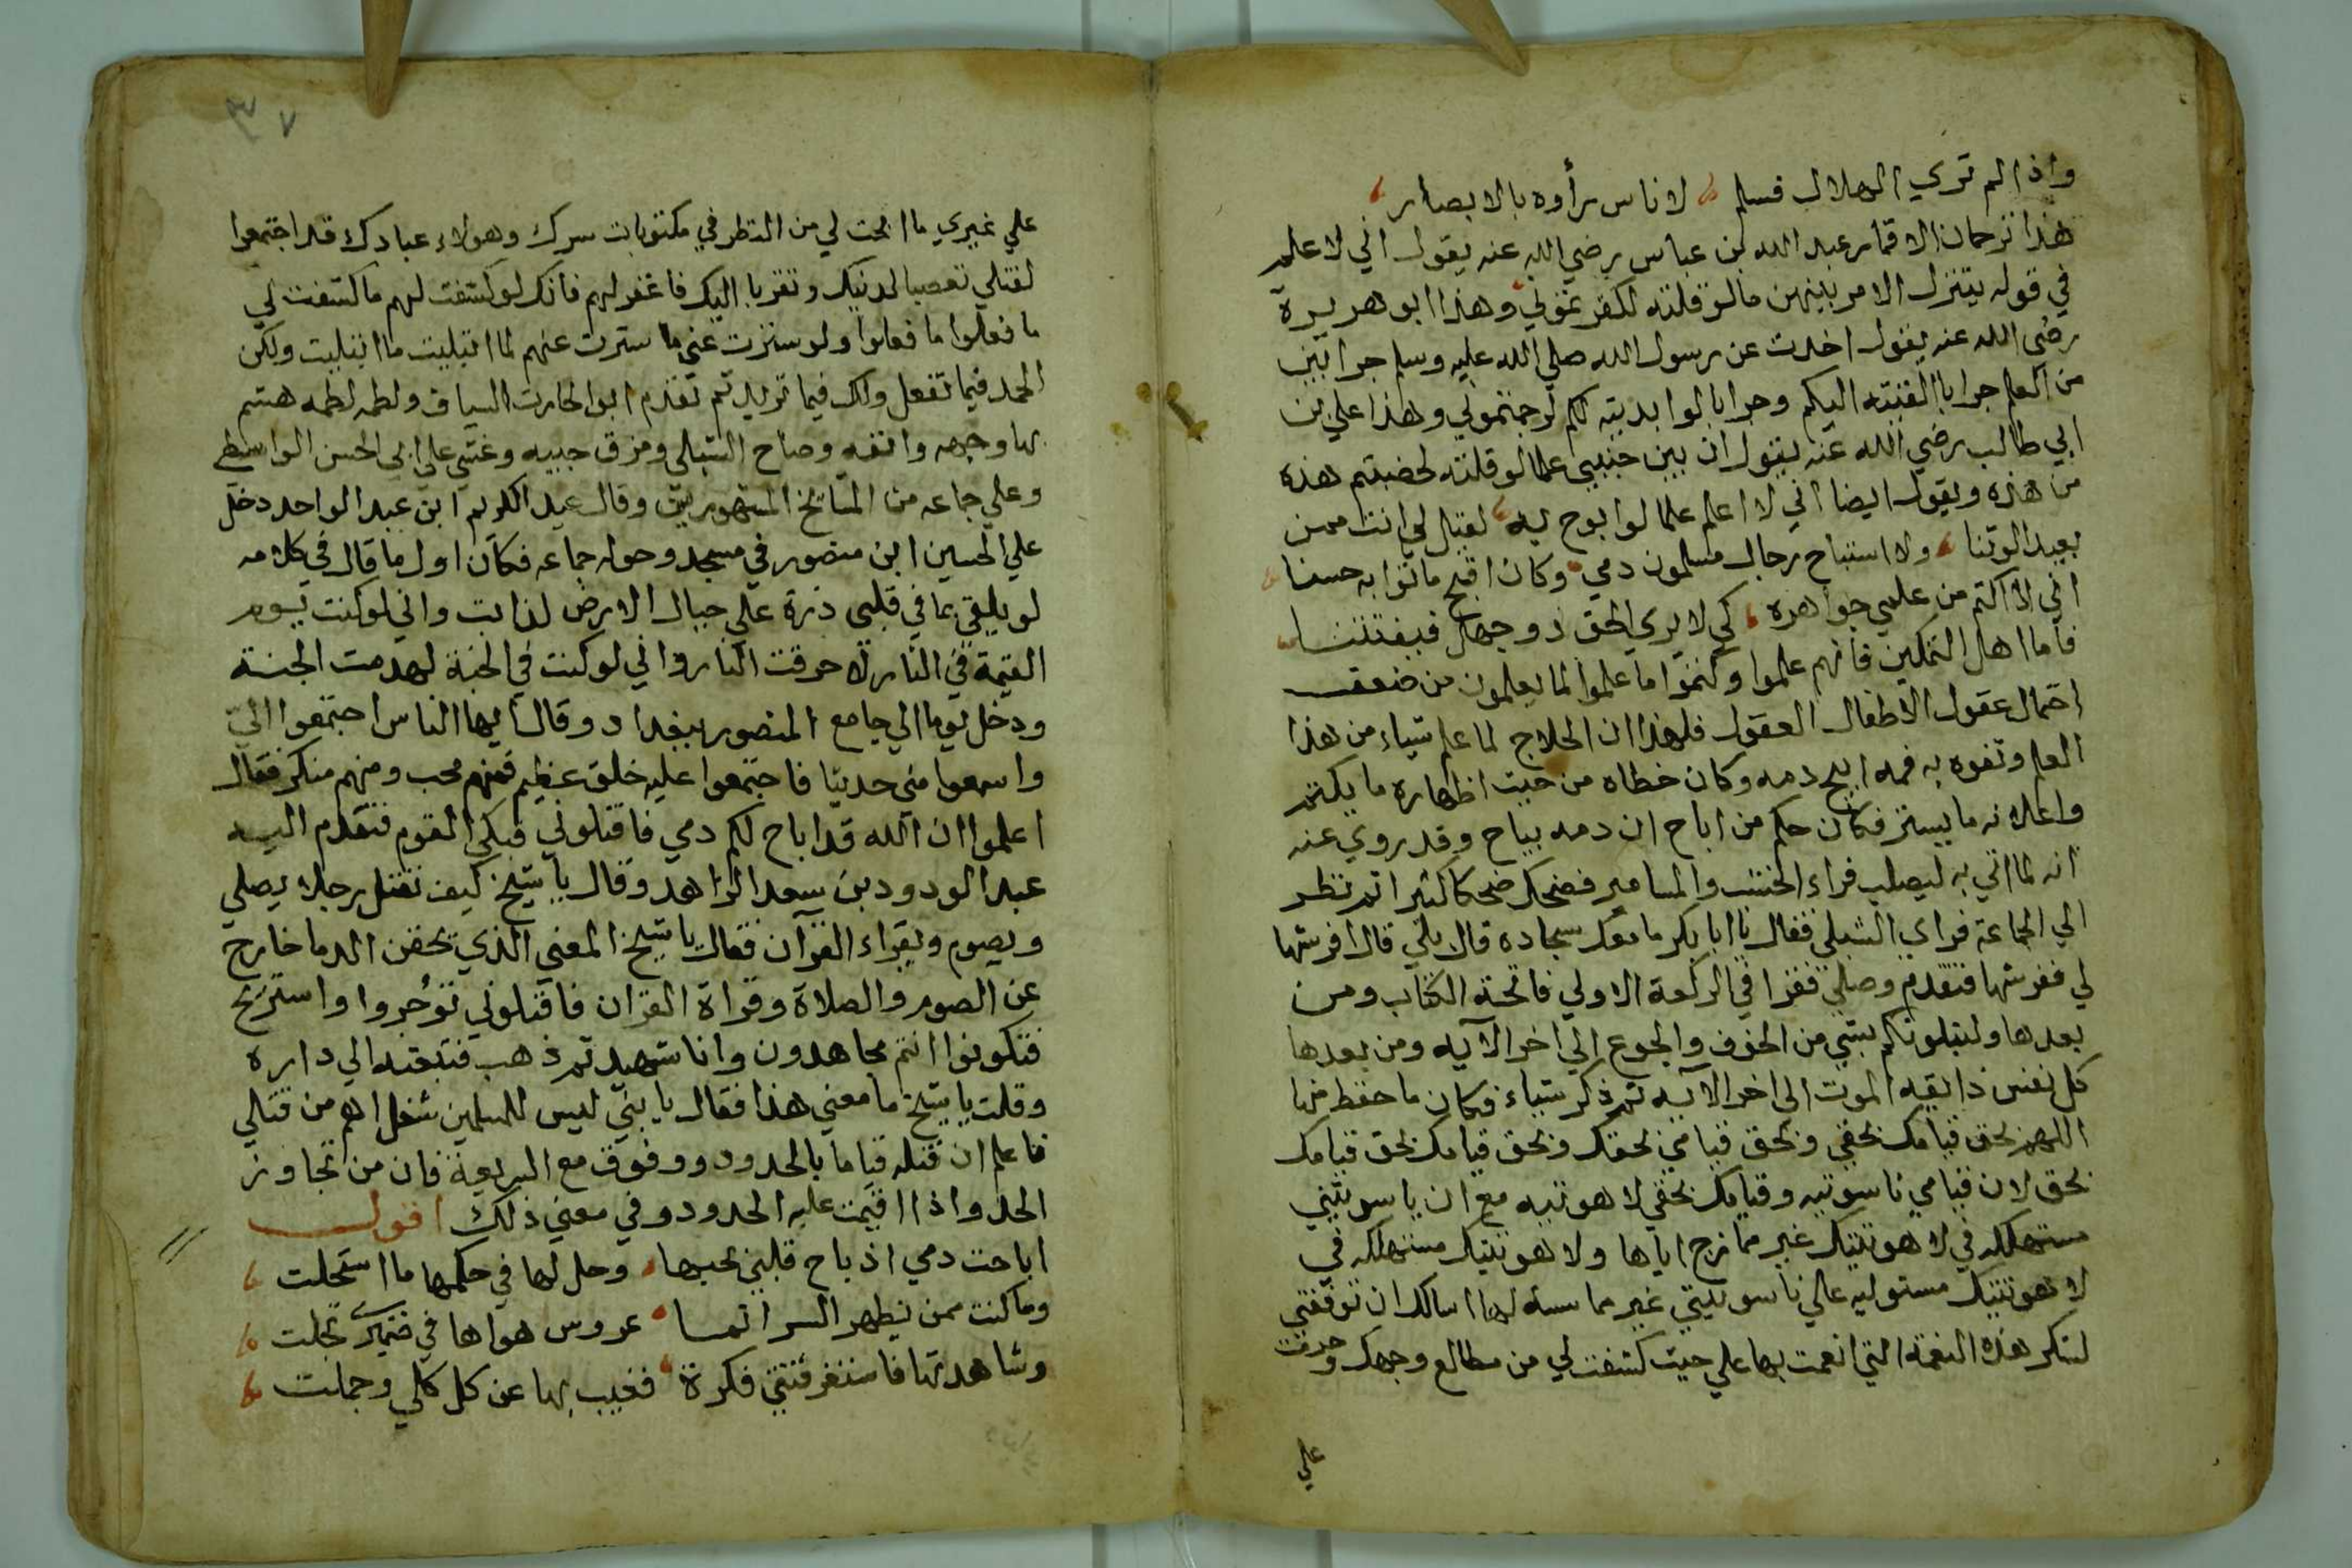 واذا لم تري الهلال فسلم لاناس رأوه بالابصار
هذا ترجمان الاقمار عبد الله بن عباس رضي الله عنه يقول اني لا علم
في قوله يتنزل الامر بينهن ما لو قلته لكفرتموني وهذا ابو هريرة
رضي الله عنه يقول اخذت عن رسول الله صلي الله عليه وسلم جرابين
من العلم جرابا القيته اليكم وجرابا لو ابديته لكم لرجمتموني وهذا علي بن
ابي طالب رضي الله عنه يقول ان بين جنبيي علما لو قلته لخضبتم هذه
من هذه ويقول ايضا اني لا اعلم علما لو ابوح به لقيل لي انت ممن
يعبد الوثنا ولا استباح رجال مسلمون دمي وكان اقبح ما توا به حسنا
اني لا اكتم من علمي جواهره كي لا يري الحق ذو جهل فيفتتنا
فاما اهل التمكين فانهم علموا وكتموا ما علموا لما يعلمون من ضعف
احتمال عقول الاطفال العقول فلهذا ان الحلاج لما علم شياء من هذا
العلم وتفوه به فمه ابيح دمه وكان خطاه من حيث اظهاره ما يكتم
واعلانه ما يستر فكان حكم من اباح ان دمه يباح وقد روي عنه
انه لما اتي به ليصلب فراء الخشب والمسامير فضحك ضحكا كثيرا ثم نظر
الي الجماعة فراي الشبلي فقال يا ابا بكر ما معك سجاده قال بلي قال افرشها
لي ففرشها فتقدم وصلي فقرا في الركعة الاولي فاتحة الكتاب ومن
بعدها ولنبلونكم بشي من الخوف والجوع الي اخر الايه ومن بعدها
كل نفس ذايقه الموت الي اخر الايه ثم ذكر شياء فكان ما حفظ منها
اللهم بحق قيامك بحقي وبحق قيامي بحقك وبحق قيامك بحق قيامك
بحق لان قيامي ناسوتيه وقيامك بحقي لاهوتيه مع ان ناسوتيتي
مستهلكه في لاهوتيتك غير ممازج اياها ولاهوتيتك مستهلكه في
لاهوتيتك مستوليه علي ناسوتيتي غير مماسه لها اسالك ان توفقني
لشكر هذه النعمة التي انعمت بها علي حيث كشفت لي من مطالع وجهك وحرمت
علي
علي غيري ما ابحت لي من النظر في مكنونات سرك وهولاء عبادك قد اجتمعوا
لقتلي تعصبا لدينك وتقربا اليك فاغفر لهم فانك لو كشفت لهم ما كشفت لي
ما فعلوا ما فعلوا ولو سترت عني ما سترت عنهم لما ابتليت ما ابتليت ولك
الحمد فيما تفعل ولك فيما تريد ثم تقدم ابو الحارث السياف ولطمه لطمه هشم
بها وجهه وانفه وصاح الشبلي ومزق جيبه وغشي علي ابي الحسن الواسطي
وعلي جماعه من المشائخ المشهورين وقال عبد الكريم ابن عبد الواحد دخل
علي الحسين ابن منصور في مسجد وحوله جماعه فكان اول ما قال في كلامه
لو يلقي مما في قلبي ذرة علي جبال الارض لذابت واني لو كنت يوم
القيمة في النار لاحرقت النار واني لو كنت في الجنة لهدمت الجنة
ودخل يوما الي جامع المنصور ببغداد وقال ايها الناس اجتمعوا اليّ
واسمعوا مني حديثا فاجتمعوا عليه خلق عظيم فمنهم محب ومنهم منكر فقال
اعلموا ان الله قد اباح لكم دمي فاقتلوني فبكي القوم فتقدم اليه
عبد الودود بن سعد الزاهد وقال يا شيخ كيف نقتل رجلا يصلي
ويصوم ويقراء القرآن فقال يا شيخ المعني الذي يحقن الدما خارج
عن الصوم والصلاة وقراة القران فاقتلوني تؤجروا واستريح
فتكونوا انتم مجاهدون وانا شهيد ثم ذهب فتبعته الي داره
وقلت يا شيخ ما معني هذا فقال يا بني ليس للمسلمين شغل اهم من قتلي
فاعلم ان قتله قياما بالحدود ووقوف مع الشريعة فان من تجاوز
الحد واذا اقيمت عليه الحدود وفي معني ذلك اقول
اباحت دمي اذ باح قلبي بحبها وحل لها في حكمها ما استحلت
وما كنت ممن يظهر السر انما عروس هواها في ضميري تجلت
وشاهدتها فاستغرقتني فكرة فغيب بها عن كل كلي وجملت